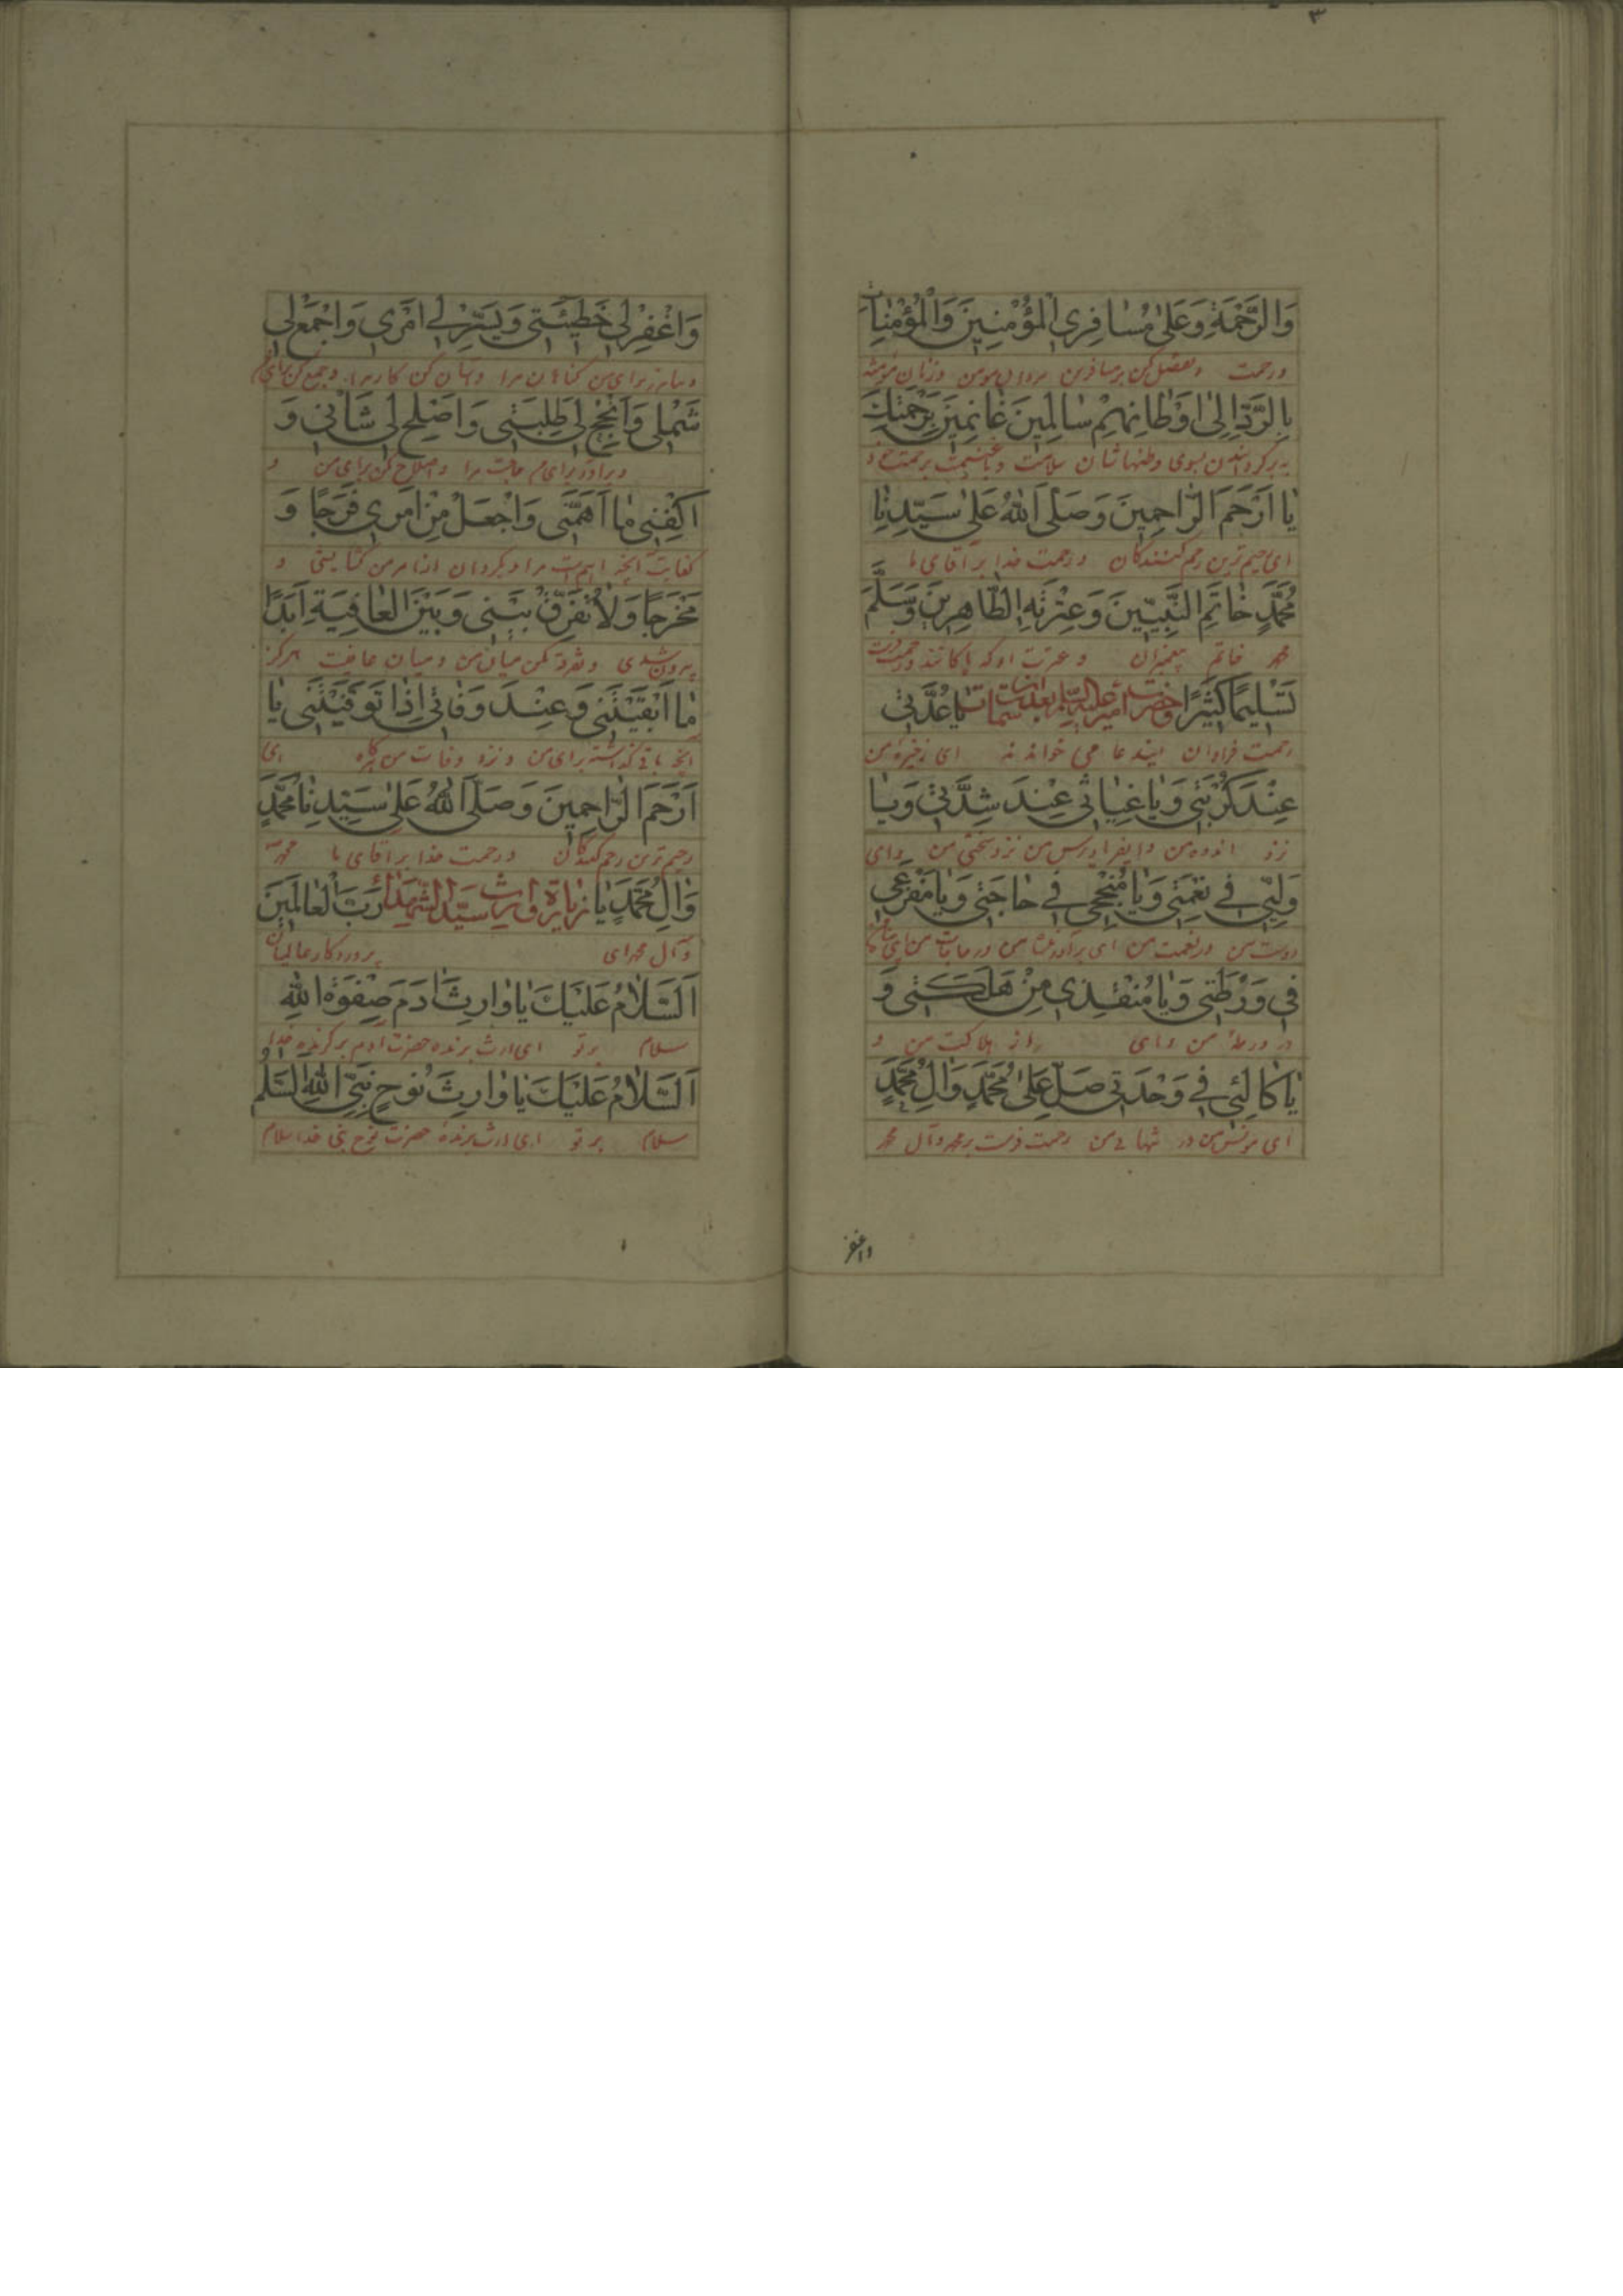 ۳
وَالرَّحْمَةِ وَعَلیٰ مُسٰافِرِي الْمُؤْمِنِينَ وَالْمُؤْمِنٰاتِ
و رحمت و تفضل کن بر مسافرین مردان مومن و زنان مومنه
بِالرَّدِّ اِلیٰ اَوْطٰانِهِمْ سٰالِمِينَ غٰانِمِينَ بِرَحْمَتِكَ
بسوی وطنهاشان سلامت و با غنیمت برحمت خود
يٰا اَرْحَمَ الرّٰاحِمِينَ وَصَلَّی اللّٰهُ عَلیٰ سَيِّدِنٰا
ای رحیم ترین رحم کنندکان و رحمت خدا بر آقای ما
مُحَمَّدٍ خٰاتَمِ النَّبِيّينَ وَعِتْرَتِهِ الطّٰاهِرِينَ وَسَلَّمَ
محمد خاتم پیغمبران و عترت او که پاکانند
تَسْلِيمًا كَثِيرًا وحضرت امیر علیه السلام بعد از سمات يٰا عُدَّتي
رحمت فراوان ایندعا می خواندند ای ذخیره من
عِنْدَ كُرْبَتي وَيٰا غِيٰاثي عِنْدَ شِدَّتي وَيٰا
نزد اندوه من و ایفریادرس من نزد سختی من و ای
وَلِيّي في نِعْمَتي وَيٰا مُنْجِحي في حٰاجَتي وَيٰا مَفْزَعي
دوست من در نعمت من ای من در حاجات من
في وَرْطَتي وَيٰا مُنْقِذي مِنْ هَلَكَتي وَ
در ورطهٔ من و ای از هلاکت من و
يٰا كٰالِئي في وَحْدَتي صَلِّ عَلیٰ مُحَمَّدٍ وَاٰلِ مُحَمَّدٍ
ای مونس من در تنهائی من رحمت فرست بر محمد و آل محمد
واغفر
وَاغْفِرْ لي خَطيئَتي وَيَسِّرْ لي اَمْري وَاجْمَعْ لي
و بیامرز برای من کناهان مرا و آسان کن کار مرا و جمع کن برای
شَمْلي وَاَنْجِحْ لي طَلِبَتي وَاَصْلِحْ لي شَأْني وَ
و برآور برای من حاجت مرا و اصلاح کن برای من و
اكْفِني مٰا اَهَمَّني وَاجْعَلْ لي مِنْ اَمْري فَرَجًا وَ
کفایت مرا و بکردان از امر من کشایشی و
مَخْرَجًا وَلٰا تُفَرِّقْ بَيْني وَبَيْنَ الْعٰافِيَةِ اَبَدًا
بیرون شدی و تفرقه مکن میان من و میان عافیت هرکز
مٰا اَبْقَيْتَني وَعِنْدَ وَفٰاتي اِذٰا تَوَفَّيْتَني يٰا
برای من و نزد وفات من ای
اَرْحَمَ الرّٰاحِمينَ وَصَلَّی اللّٰهُ عَلیٰ سَيِّدِنٰا مُحَمَّدٍ
رحیم ترین رحم کنندکان و رحمت خدا بر آقای ما محمد
وَاٰلِ مُحَمَّدٍ يٰا زیارة وارث سیّد الشهداء رَبَّ الْعٰالَمينَ
و آل محمد ای پروردکار عالمیان
اَلسَّلٰامُ عَلَيْكَ يٰا وٰارِثَ اٰدَمَ صِفْوَةِ اللّٰهِ
سلام بر تو ای ارث برنده حضرت آدم برکزیده خدا
اَلسَّلٰامُ عَلَيْكَ يٰا وٰارِثَ نُوحٍ نَبِيِّ اللّٰهِ السَّلٰم
سلام بر تو ای ارث برنده حضرت نوح نبی خدا سلام